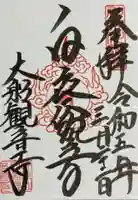 奉拝
令和五年
三月 日
白衣観音
大船観音寺